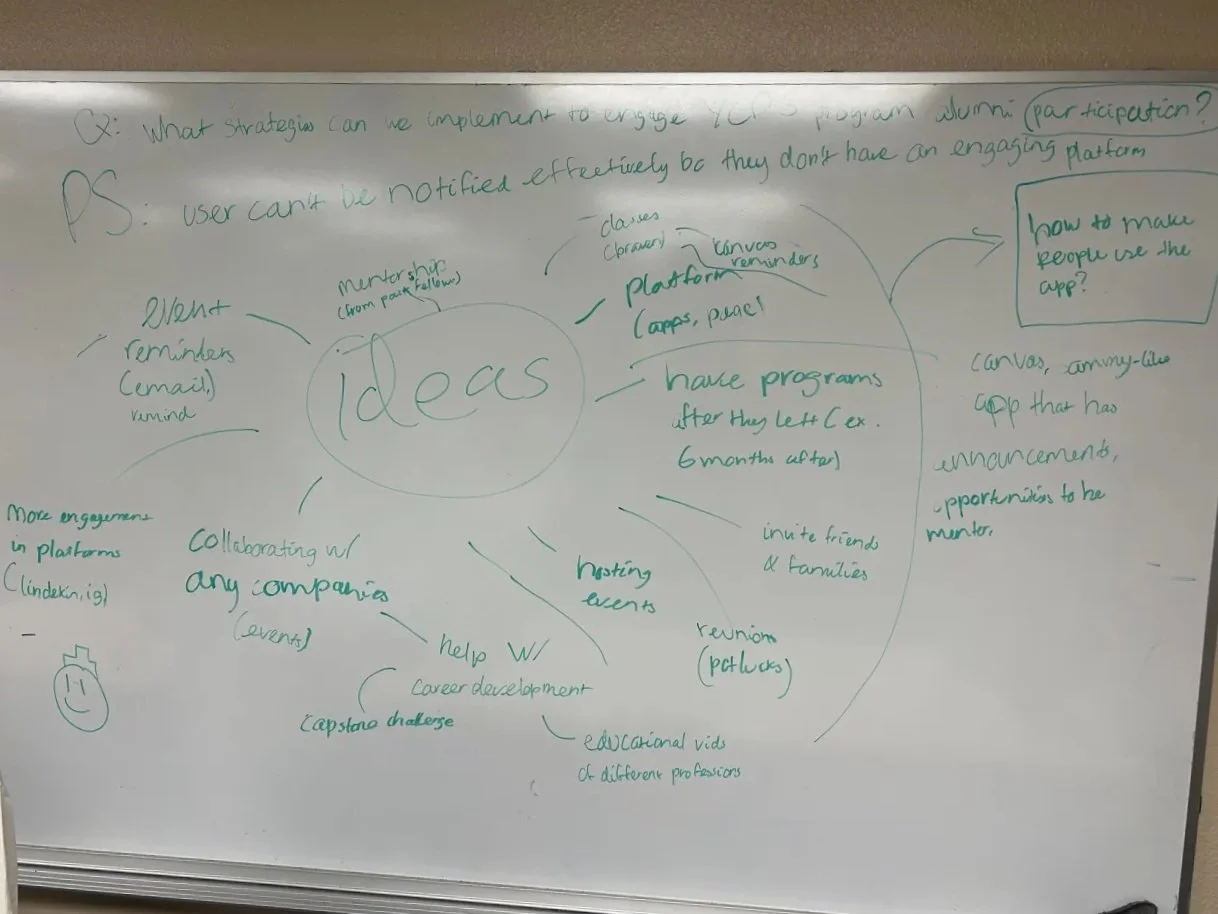 Q: What strategies can we implement to engage YCP's program alumni participation?
PS: user can't be notified effectively bc they don't have an engaging platform
classes
canvas
reminders
mentorship
(from past fellows)
platform
(apps,
how to make
people use the
app?
event
reminders
(email,)
remind
ideas
have programs
after they left (ex.
6 months after)
canvas,
app that has
announcements,
opportunities to be
mentor.
More engagement
in platforms
(lindekin, ig)
Collaborating w/
any companies
(events)
invite friends
& families
hosting
events
reunion
(potlucks)
help w/
career development
capstone challenge
educational vids
of different professions